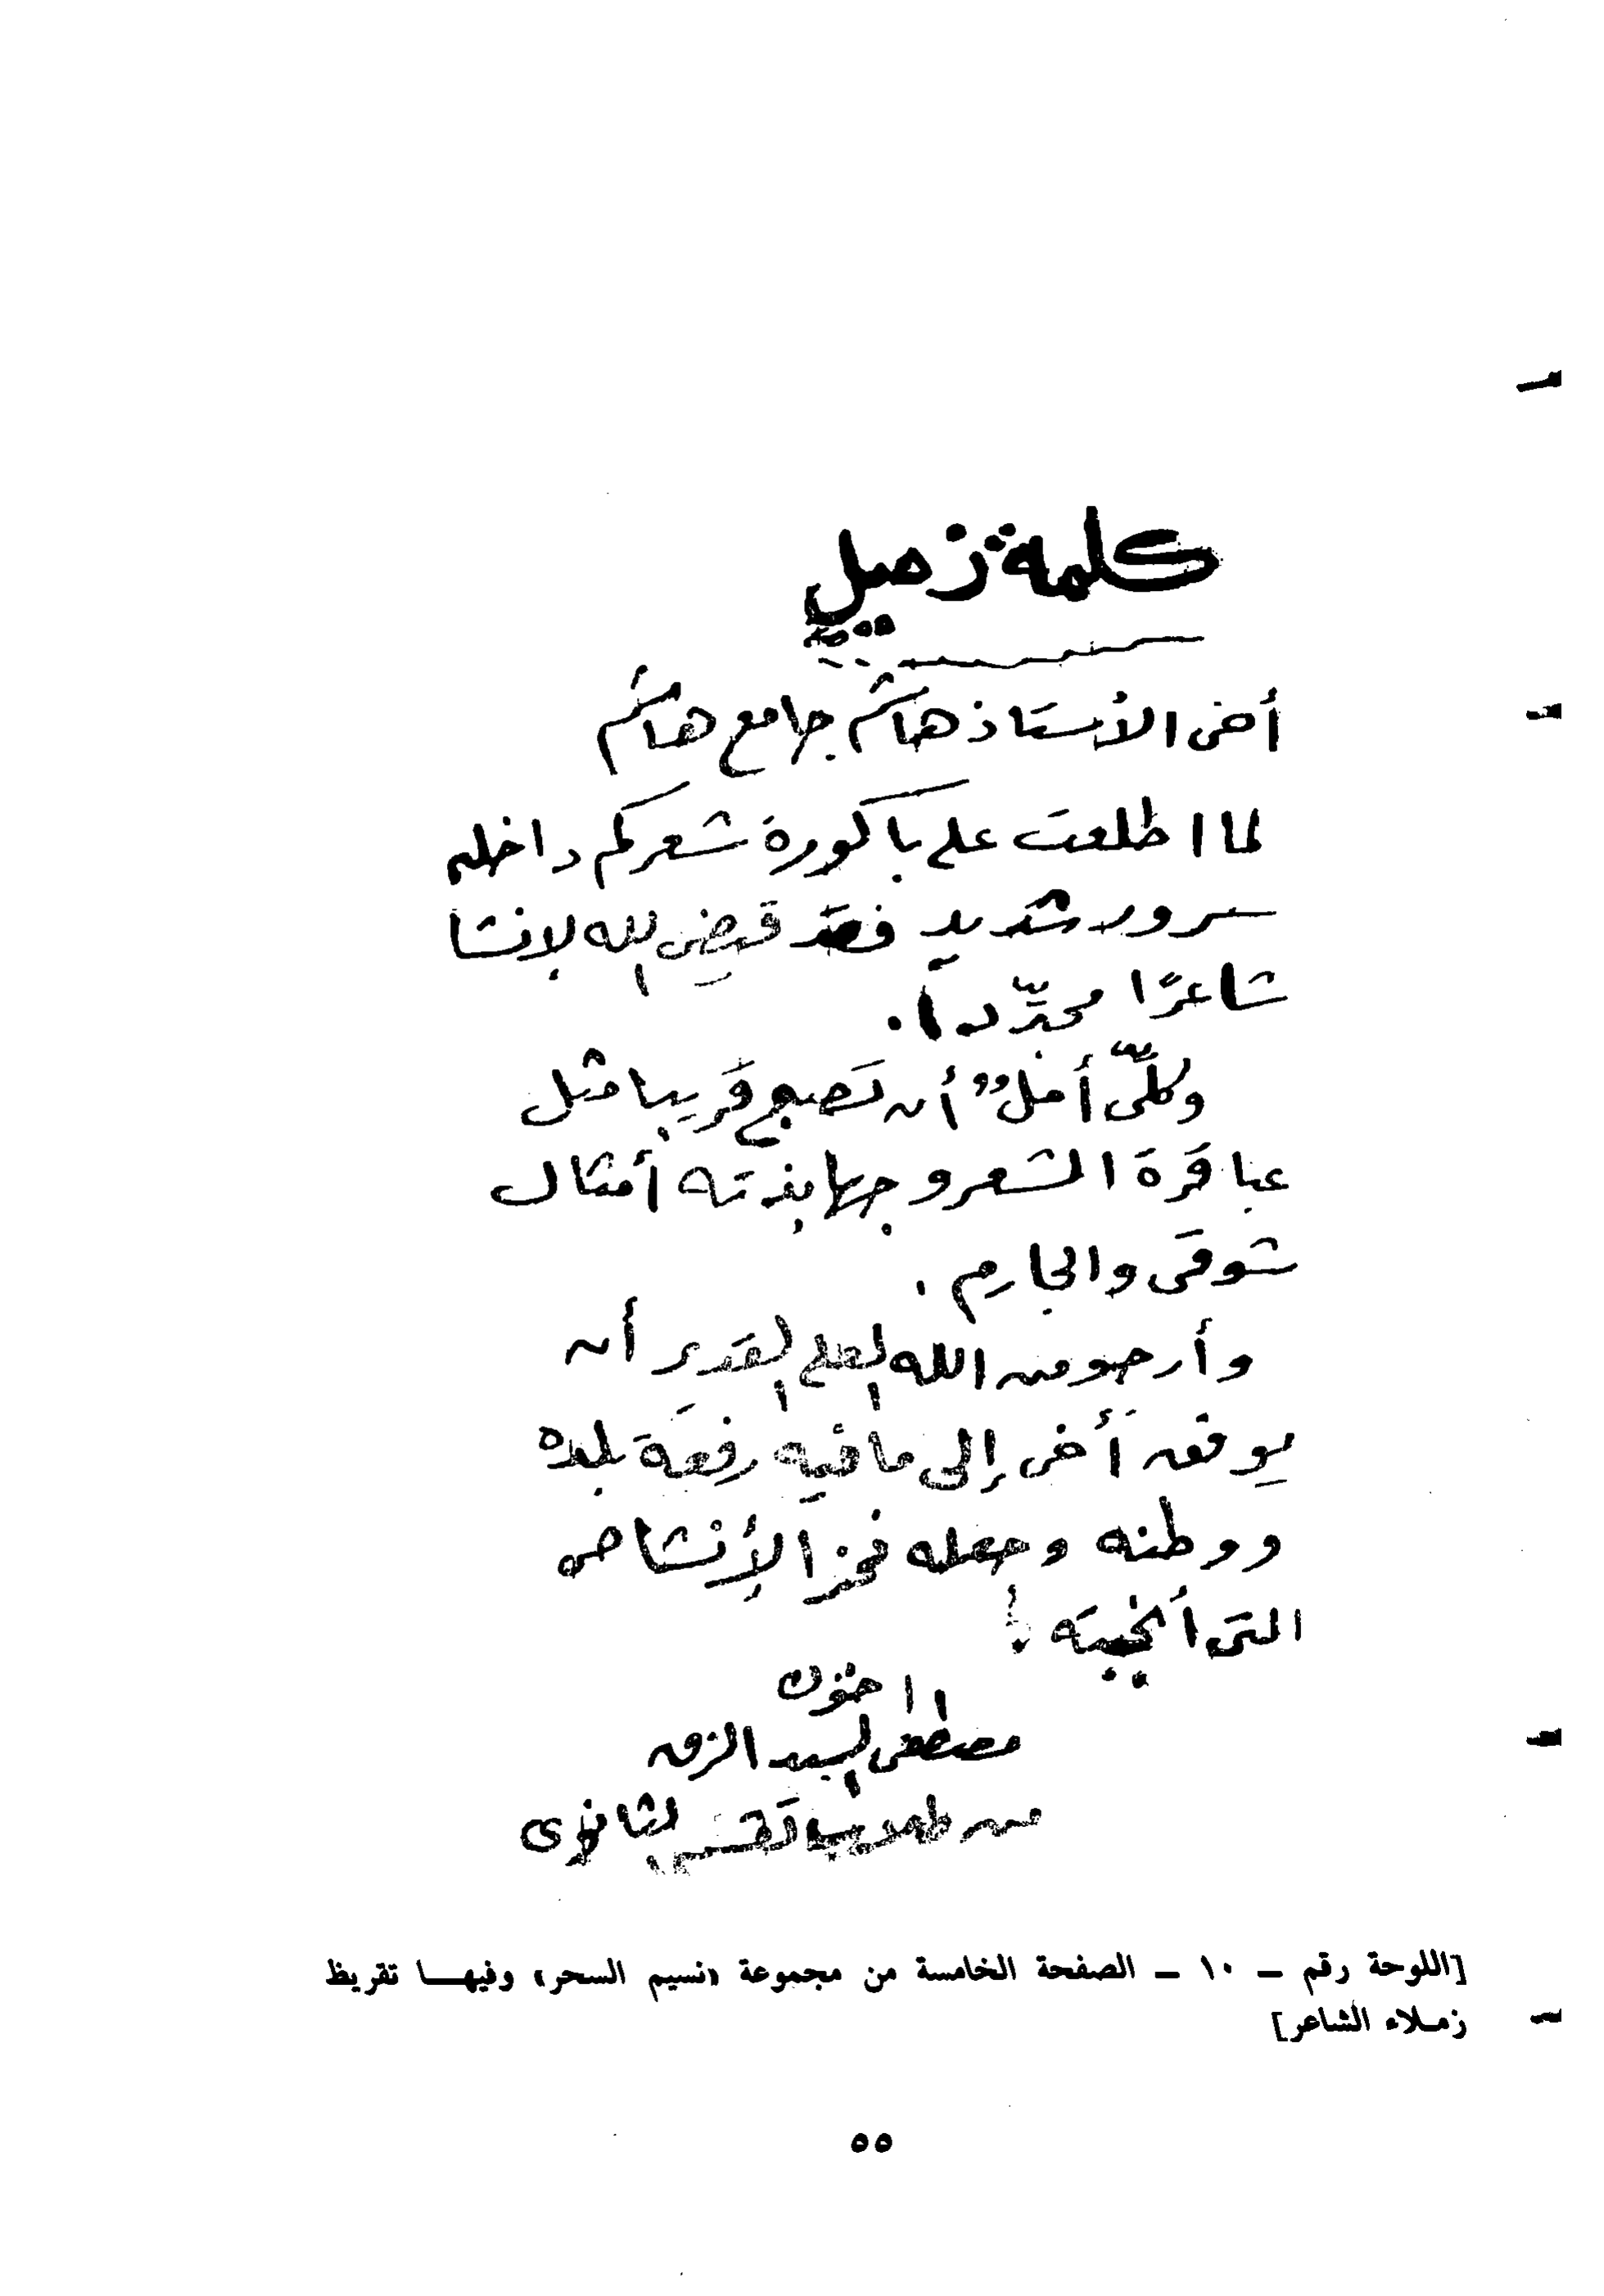 كلمة زميل
أخى الأستاذ هاشم جامع هاشم
لما اطلعت على باكورة شعركم داخلنى
سرور شديد فقد قيض الله لإنشا
شاعرًا مجدّدا.
وكلّى أملٌ أن تصبح قريبا مثل
عباقرة الشعر وجهابذته أمثال
شوقى والجارم.
وأرجو من الله العلى القدير أن
يوفق أخى إلى مافيه رفعة بلده
ووطنه وجعله فخر الأنشاص
التى أنجبته
اخوك
مصطفى السيد الزق
من طلاب القسم الثانوى
[اللوحة رقم – ١٠ – الصفحة الخامسة من مجموعة «نسيم السحر» وفيهـا تقريظ
زملاء الشاعر]
٥٥